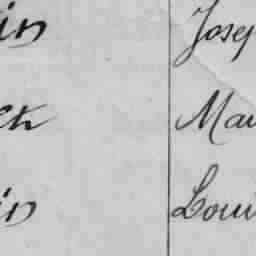 in Josep
ck Mau
in Loui